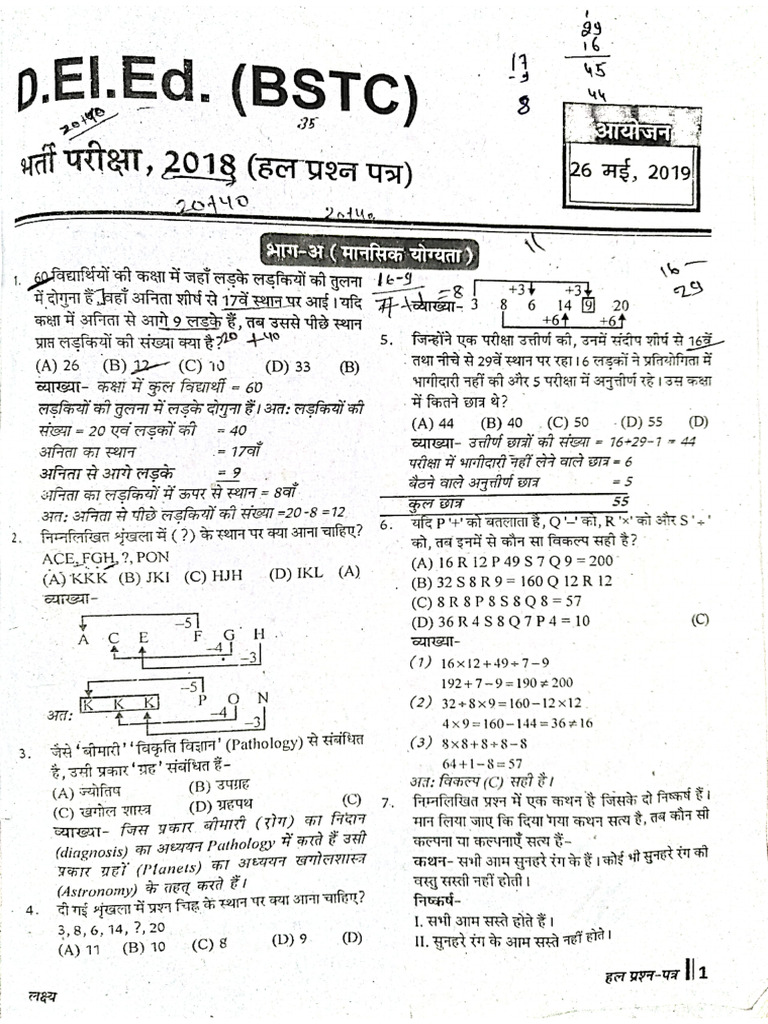 29
16
45
44
17
-9
8
D.El.Ed. (BSTC)
20+40
35
भर्ती परीक्षा, 2018 (हल प्रश्न पत्र)
20+40
20+40
आयोजन
26 मई, 2019
भाग-अ ( मानसिक योग्यता )
11
1. 60 विद्यार्थियों की कक्षा में जहाँ लड़के लड़कियों की तुलना
में दोगुना हैं, वहाँ अनिता शीर्ष से 17वें स्थान पर आई। यदि
कक्षा में अनिता से आगे 9 लडके हैं, तब उससे पीछे स्थान
प्राप्त लड़कियों की संख्या क्या है?
20 +40
(A) 26 (B) 12 (C) 10 (D) 33 (B)
व्याख्या- कक्षा में कुल विद्यार्थी = 60
लड़कियों की तुलना में लड़के दोगुना हैं। अतः लड़कियों की
संख्या = 20 एवं लड़कों की = 40
अनिता का स्थान = 17वाँ
अनिता से आगे लड़के = 9
अनिता का लड़कियों में ऊपर से स्थान = 8वाँ
अतः अनिता से पीछे लड़कियों की संख्या =20-8 =12
2. निम्नलिखित श्रृंखला में (?) के स्थान पर क्या आना चाहिए?
ACE, FGH, ?, PON
(A) KKK (B) JKI (C) HJH (D) IKL (A)
व्याख्या-
-5
A C E F G H
-4
-3
-5
अतः K K K P O N
-4
-3
3. जैसे 'बीमारी' 'विकृति विज्ञान' (Pathology) से संबंधित
है, उसी प्रकार 'ग्रह' संबंधित हैं-
(A) ज्योतिष (B) उपग्रह
(C) खगोल शास्त्र (D) ग्रहपथ (C)
व्याख्या- जिस प्रकार बीमारी (रोग) का निदान
(diagnosis) का अध्ययन Pathology में करते हैं उसी
प्रकार ग्रहों (Planets) का अध्ययन खगोलशास्त्र
(Astronomy) के तहत् करते हैं।
4. दी गई श्रृंखला में प्रश्न चिह्न के स्थान पर क्या आना चाहिए?
3, 8, 6, 14, ?, 20
(A) 11 (B) 10 (C) 8 (D) 9 (D)
लक्ष्य
16-9
=8
16-
29
+3 +3
व्याख्या- 3 8 6 14 9 20
+6 +6
5. जिन्होंने एक परीक्षा उत्तीर्ण की, उनमें संदीप शीर्ष से 16वें
तथा नीचे से 29वें स्थान पर रहा। 6 लड़कों ने प्रतियोगिता में
भागीदारी नहीं की और 5 परीक्षा में अनुत्तीर्ण रहे। उस कक्षा
में कितने छात्र थे?
(A) 44 (B) 40 (C) 50 (D) 55 (D)
व्याख्या- उत्तीर्ण छात्रों की संख्या = 16+29-1 = 44
परीक्षा में भागीदारी नहीं लेने वाले छात्र = 6
बैठने वाले अनुत्तीर्ण छात्र = 5
कुल छात्र 55
6. यदि P '+' को बतलाता है, Q '–' को, R '×' को और S '÷'
को, तब इनमें से कौन सा विकल्प सही है?
(A) 16 R 12 P 49 S 7 Q 9 = 200
(B) 32 S 8 R 9 = 160 Q 12 R 12
(C) 8 R 8 P 8 S 8 Q 8 = 57
(D) 36 R 4 S 8 Q 7 P 4 = 10 (C)
व्याख्या-
(1) 16×12+49÷7-9
192+7-9=190≠200
(2) 32÷8×9=160-12×12
4×9=160-144=36≠16
(3) 8×8+8÷8-8
64+1-8=57
अतः विकल्प (C) सही है।
7. निम्नलिखित प्रश्न में एक कथन है जिसके दो निष्कर्ष हैं।
मान लिया जाए कि दिया गया कथन सत्य है, तब कौन सी
कल्पना या कल्पनाएँ सत्य हैं-
कथन- सभी आम सुनहरे रंग के हैं। कोई भी सुनहरे रंग की
वस्तु सस्ती नहीं होती।
निष्कर्ष-
I. सभी आम सस्ते होते हैं।
II. सुनहरे रंग के आम सस्ते नहीं होते।
हल प्रश्न-पत्र 1